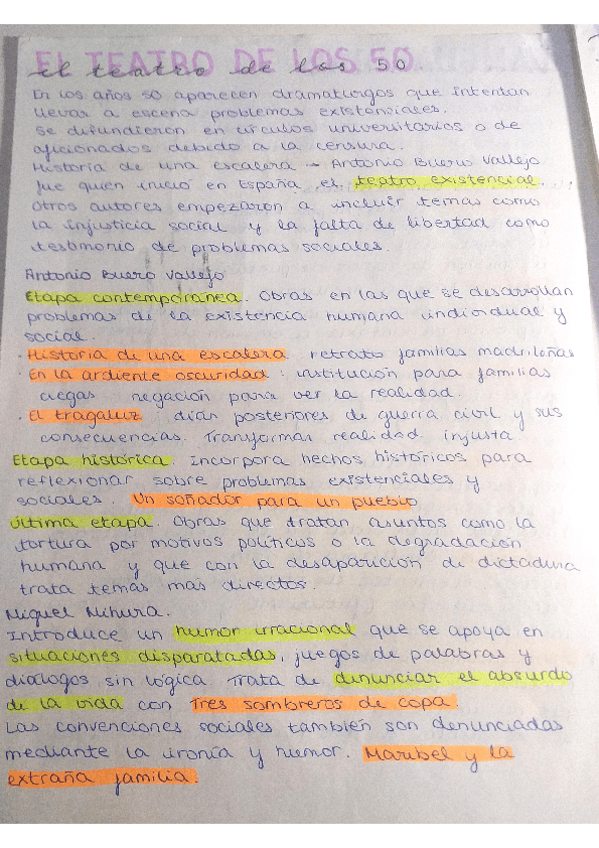 EL TEATRO DE LOS 50
el teatro de los 50.
En los años 50 aparecen dramaturgos que intentan
llevar a escena problemas existenciales.
Se difundieron en círculos universitarios o de
aficionados debido a la censura.
Historia de una escalera → Antonio Buero Vallejo
fue quien inició en España el teatro existencial.
Otros autores empezaron a incluir temas como
la injusticia social y la falta de libertad como
testimonio de problemas sociales.
Antonio Buero Vallejo
Etapa contemporánea. Obras en las que se desarrollan
problemas de la existencia humana individual y
social.
· Historia de una escalera retrato familias madrileñas
· En la ardiente oscuridad : institución para familias
ciegas negación para ver la realidad.
· El tragaluz días posteriores de guerra civil y sus
consecuencias. Transformar realidad injusta.
Etapa histórica. Incorpora hechos históricos para
reflexionar sobre problemas existenciales y
sociales. Un soñador para un pueblo
Última etapa. Obras que tratan asuntos como la
tortura por motivos políticos o la degradación
humana y que con la desaparición de dictadura
trata temas mas directos.
Miguel Mihura.
Introduce un humor irracional que se apoya en
situaciones disparatadas, juegos de palabras y
diálogos sin lógica. Trata de denunciar el absurdo
de la vida con Tres sombreros de copa.
Las convenciones sociales también son denunciadas
mediante la ironía y humor. Maribel y la
extraña familia.